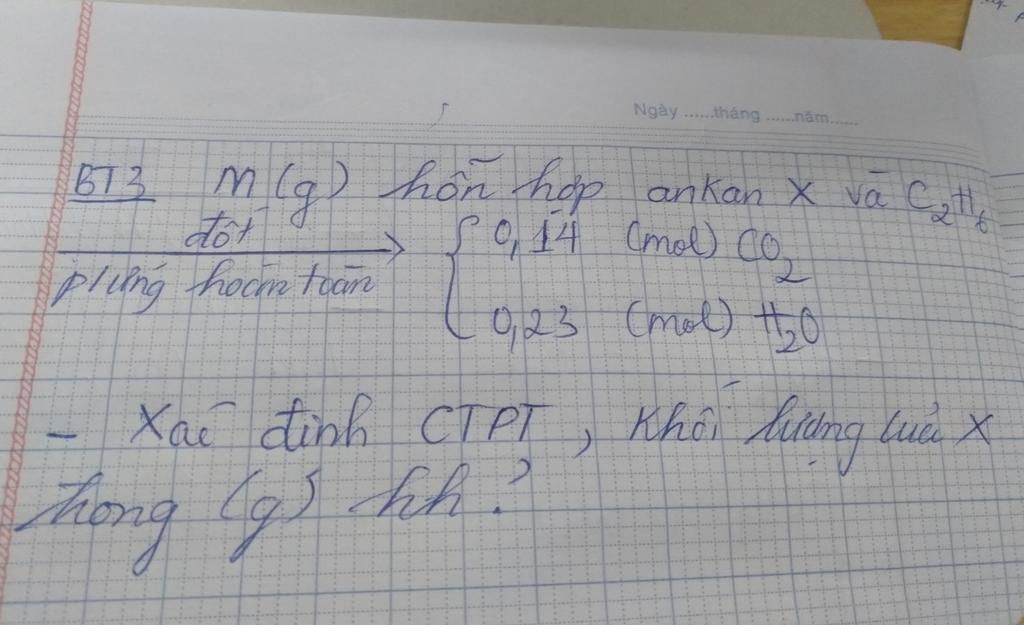 Ngày ......tháng ......năm......
BT3 m (g) hỗn hợp ankan X và C₂H₆
đốt
p/ứng hoàn toàn
0,14 (mol) CO₂
0,23 (mol) H₂O
- Xác định CTPT, khối lượng của X
trong (g) hh?